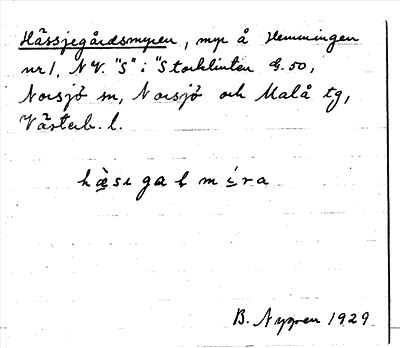 Hässjegårdsmyren, myr å Hemmingen
nr 1, NV. "S" i "Storklinten G. 50,
Norsjö sn, Norsjö och Malå tg,
Västerb. l.
B. Nygren 1929